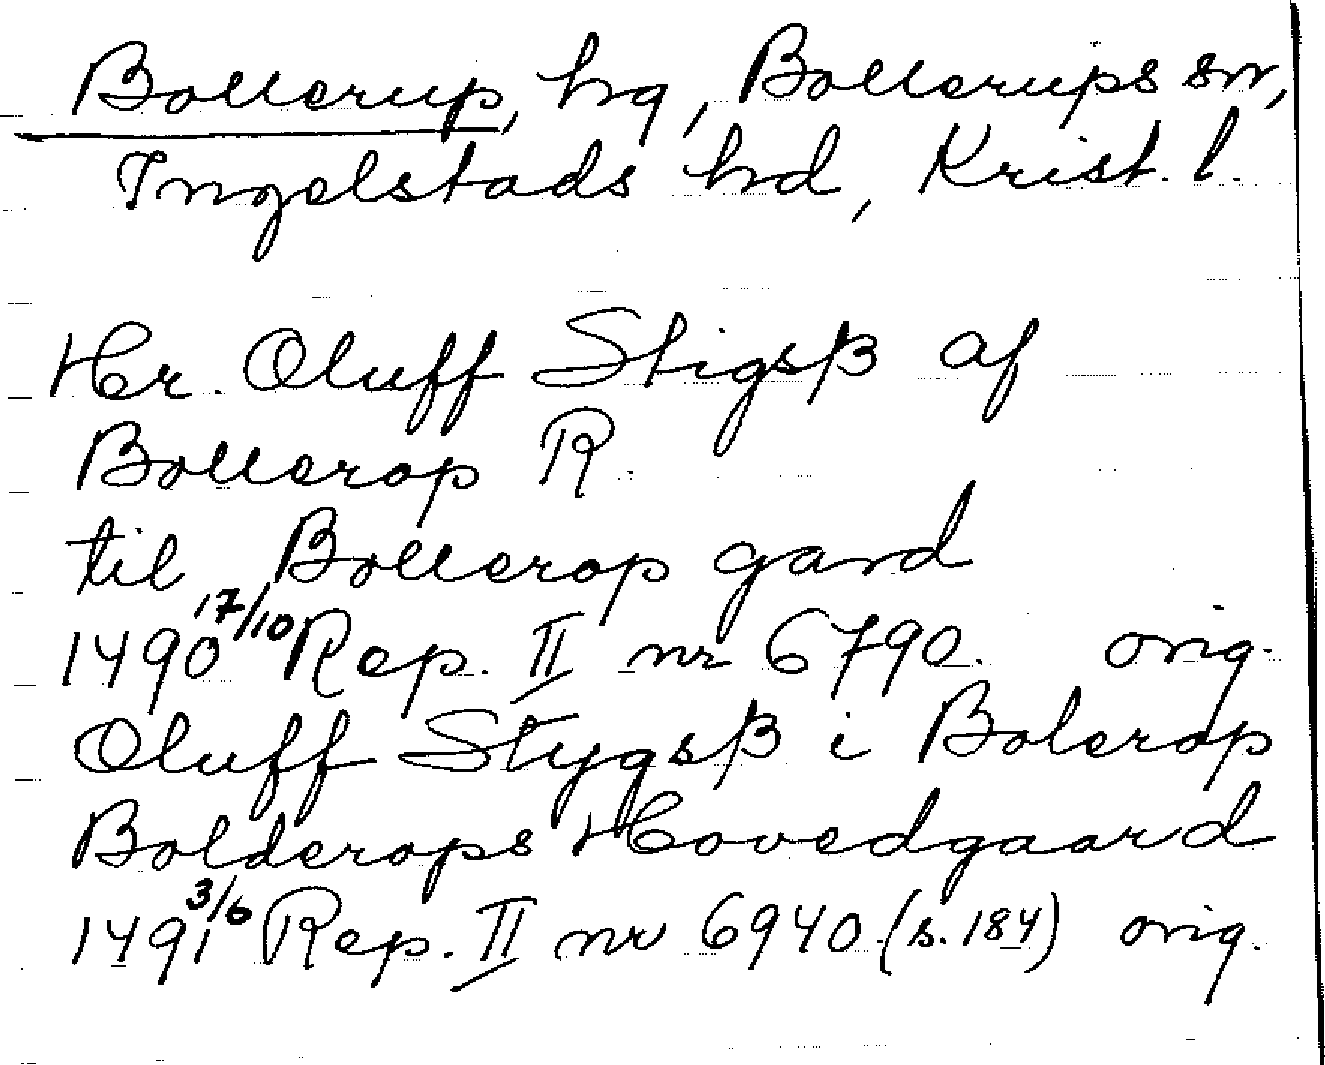 Bollerup, hg, Bollerups sn,
Ingelstads hd, Krist. l.
Her. Oluff Stigsß af
Bollerop R.
til Bollerop gard
1490 17/10 Rep. II nr 6790. orig.
Oluff Stygsß i Bolerop
Bolderops Hovedgaard
1491 3/6 Rep. II nr 6940 (s. 184) orig.